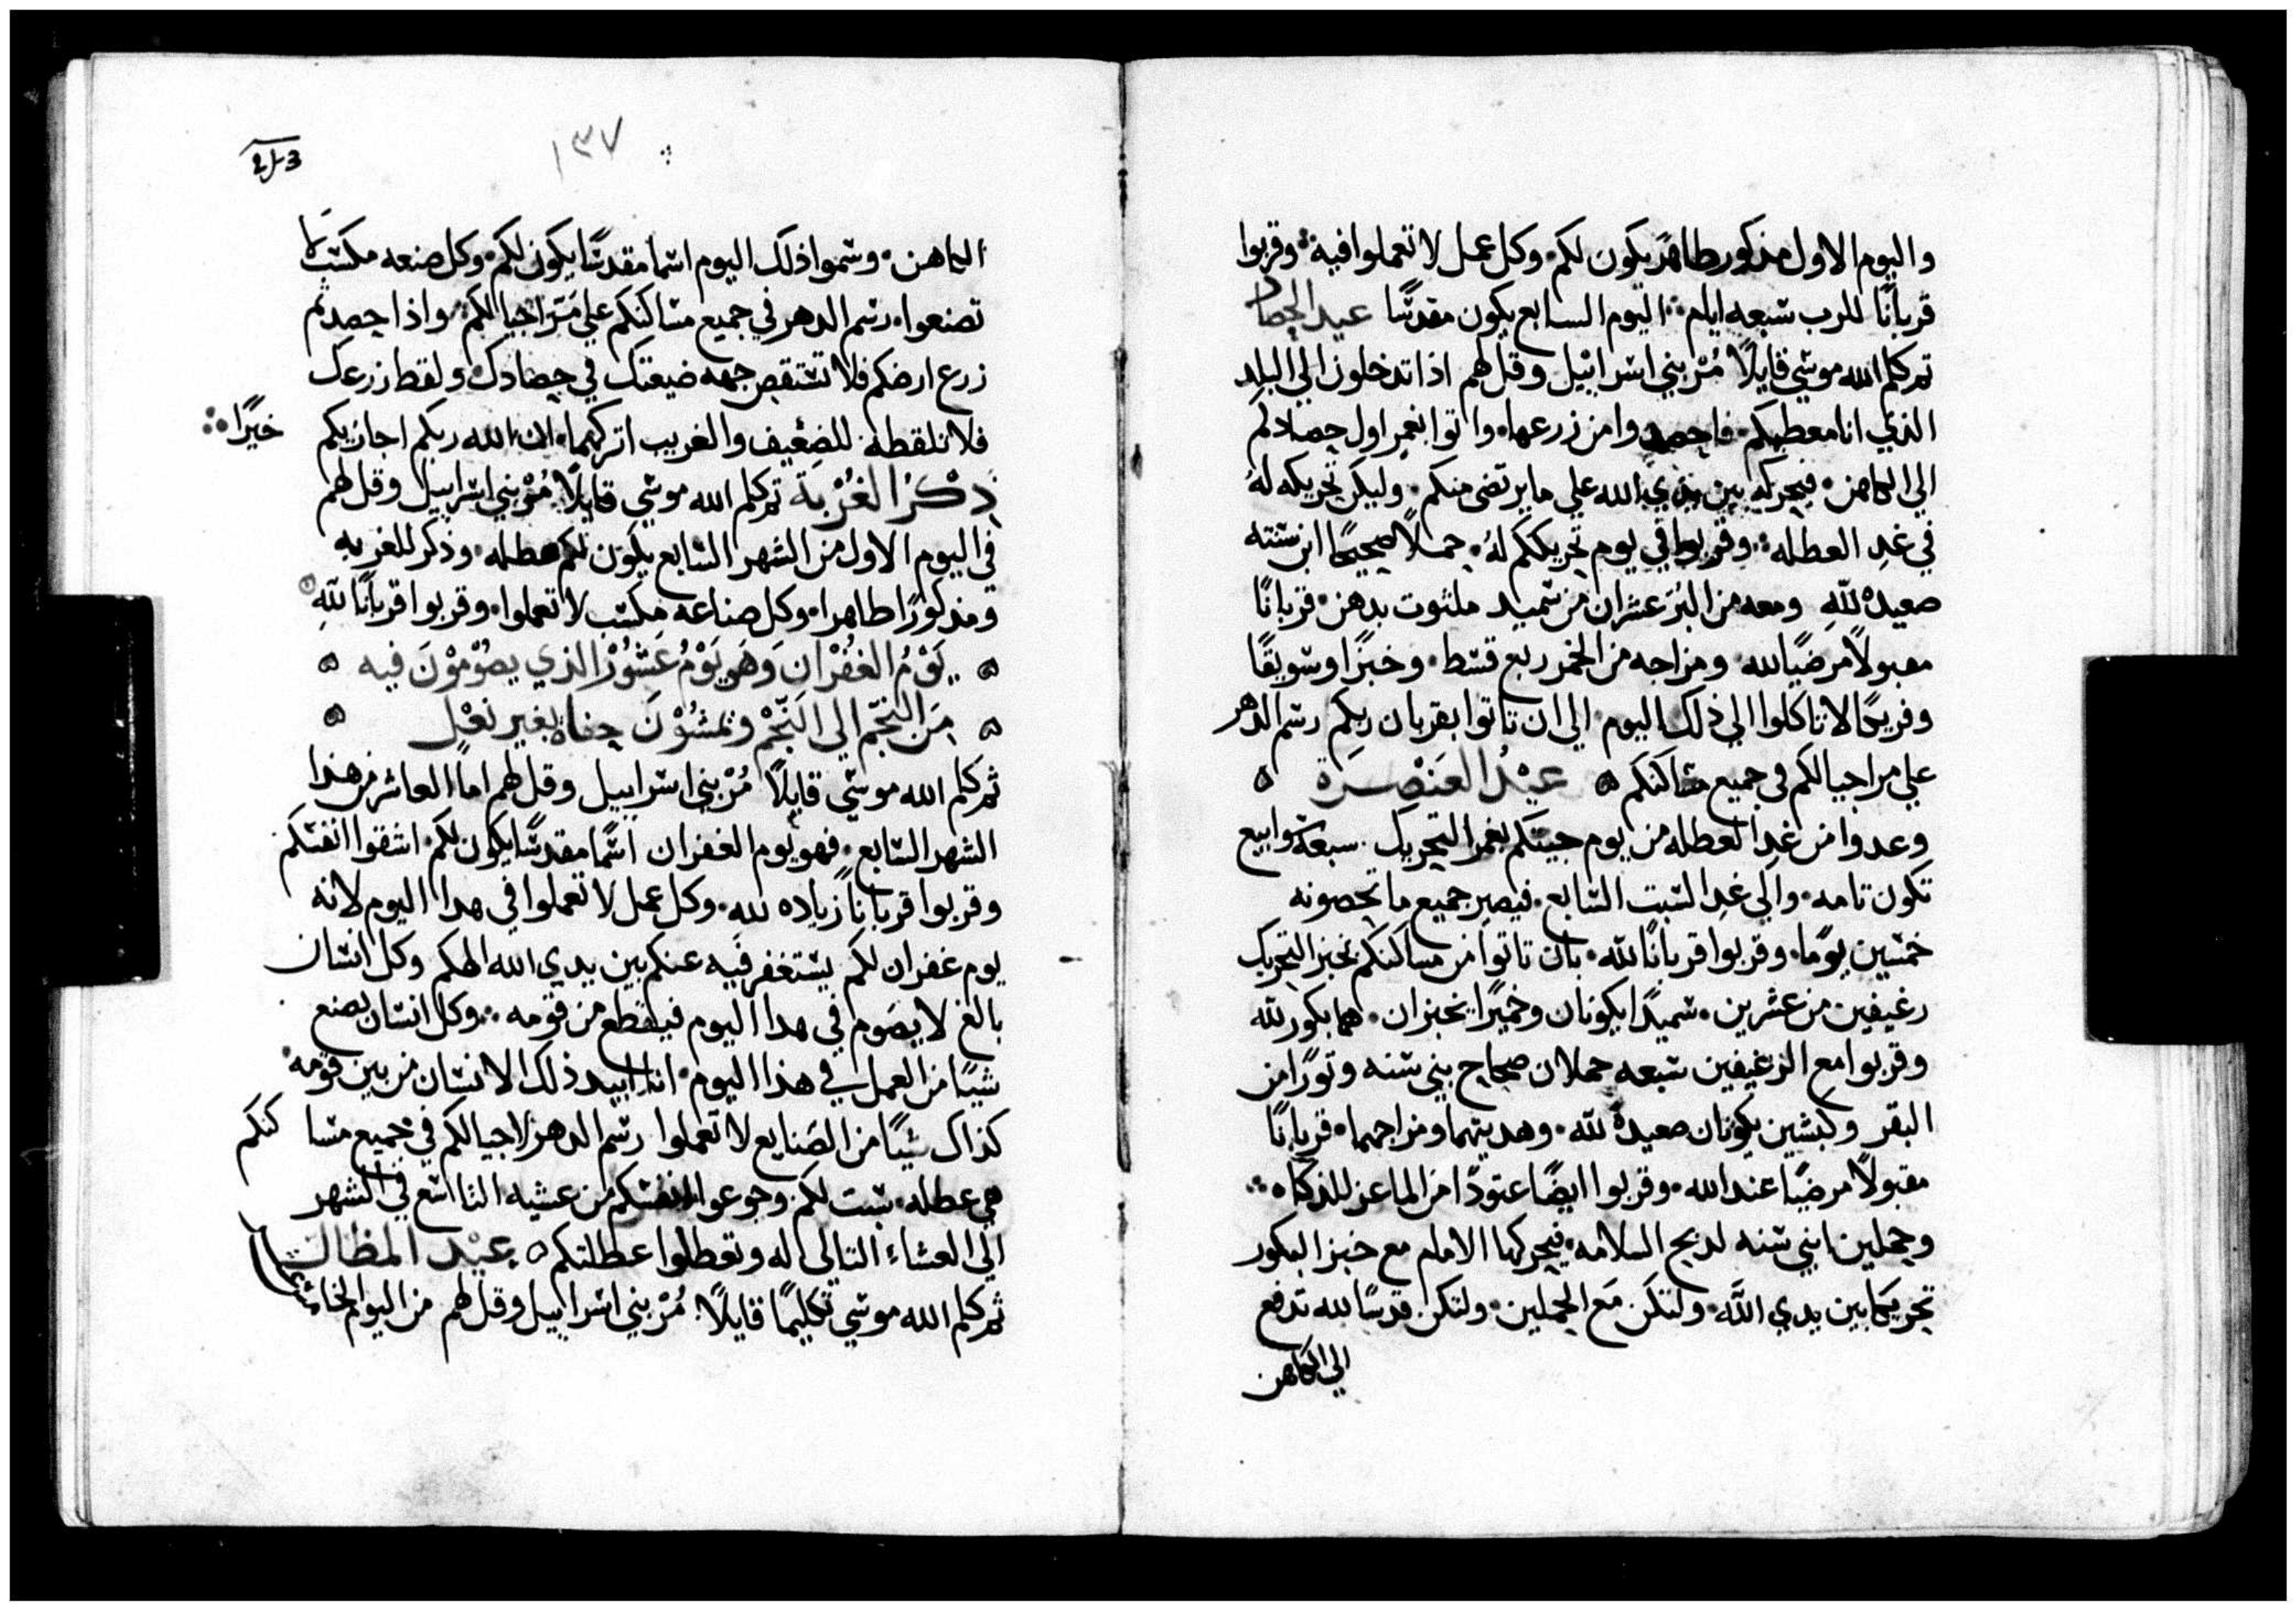 واليوم الاول مذكور طاهر يكون لكم وكل عمل لا تعملوا فيه وقربوا
قربانًا للرب سبعه ايام اليوم السابع يكون مقدسًا عيد الحصاد
ثم كلم الله موسي قايلًا مُرْ بني اسراييل وقل لهم اذا تدخلون الي البلد
الذي انا معطيكم فاحصدوا من زرعها واتوا بغمر اول حصادكم
الي الكاهن فيحركه بين يدي الله علي ما يرتضي منكم وليكن تحريكه لهُ
في غدِ العطله وقربوا في يوم تحريككم لهُ حملًا صحيحًا ابن سنته
صعيده للهِ ومعه من البُر عشران من سميد ملثوت بدهن قربانًا
مقبولًا مرضيًا لله ومزاجه من الخمر ربع قسط وخبزًا وسويقًا
وفريكًا لا تاكلوا الي ذلك اليوم الي ان تاتوا بقربان ربكم رسم الدهر
علي مر اجيالكم في جميع مساكنكم عِيْدُ العَنْصَرَة
وعدوا من غدِ العطله من يوم جيتكم بغمر التحريك سبعة سوابيع
تكون تامه والي غدِ السبت السابع فيصير جميع ما تحصونه
خمسين يومًا وقربوا قربانًا لله بان تاتوا من مساكنكم بخبز التحريك
رغيفين من عشرين سميدًا يكونان وخميرًا يخبزان هما بكور لله
وقربوا مع الرغيفين سبعه حملان صحاح بني سنه وثورًا من
البقر وكبشين يكونان صعيدة لله وهديتهما ومزاجهما قربانًا
مقبولًا مرضيًا عند الله وقربوا ايضًا عتودًا من الماعز للذكاه
وحملين ابني سنه لدبح السلامه فيحركها الامام مع خبز البكور
تحريكًا بين يدي الله ولتكن مَع الحملين ولتكن قدسًا لله تدفع
الي الكاهن
١٣٧
الكاهن وسموا ذلك اليوم اسمًا مقدسًا يكون لكم وكل صنعه مكسب لا
تصنعوا رسم الدهر في جميع مساكنكم علي مَر اجيالكم واذا حصدتم
زرع ارضكم فلا تستقص جهه ضيعتك في حصادك ولقط زرعك
فلا تلقطه للضعيف والغريب اتركهما انا الله ربكم اجازيكم خيرًا
ذِكْرُ الغُرْبَة ثم كلم الله موسي قايلًا مُرْ بني اسراييل وقل لهم
في اليوم الاول من الشهر السابع يكون لكم عطله وذكر للغربه
ومذكورًا طاهرا وكل صناعه مكسب لا تعملوا وقربوا قربانًا للهِ
يَوْمُ الغُفْرَان وَهو يَوْمُ عَشُوْرُ الذي يصُوْمُوْنَ فيه
مِنَ النَجْمِ الي النَجْمِ ويَمْشُوْنَ حفاة بغير نعْل
ثم كلم الله موسي قايلًا مُرْ بني اسراييل وقل لهم اما العاشر من هذا
الشهر السابع فهو يوم الغفران اسمًا مقدسًا يكون لكم اشقوا انفسكم
وقربوا قربانًا زياده لله وكل عمل لا تعملوا في هدا اليوم لانه
يوم غفران لكم يستغفر فيه عنكم بين يدي الله الهكم وكل انسان
بالغ لا يصوم في هدا اليوم فينقطع من قومه وكل انسان يصنع
شيًا من العمل في هذا اليوم انا ابيد ذلك الانسان من بين قومه
كذاك شيًا من الصَنايع لا تعملوا رسم الدهر لاجيالكم في جميع مساكنكم
هي عطله سبت لكم وجوعوا انفسكم من عشيه التاسع في الشهر
الي العشاء التالي له وتعطلوا عطلتكم عِيْد المظال
ثم كلم الله موسي تكليمًا قايلًا مُرْ بني اسراييل وقل لهم من اليوم الخامس